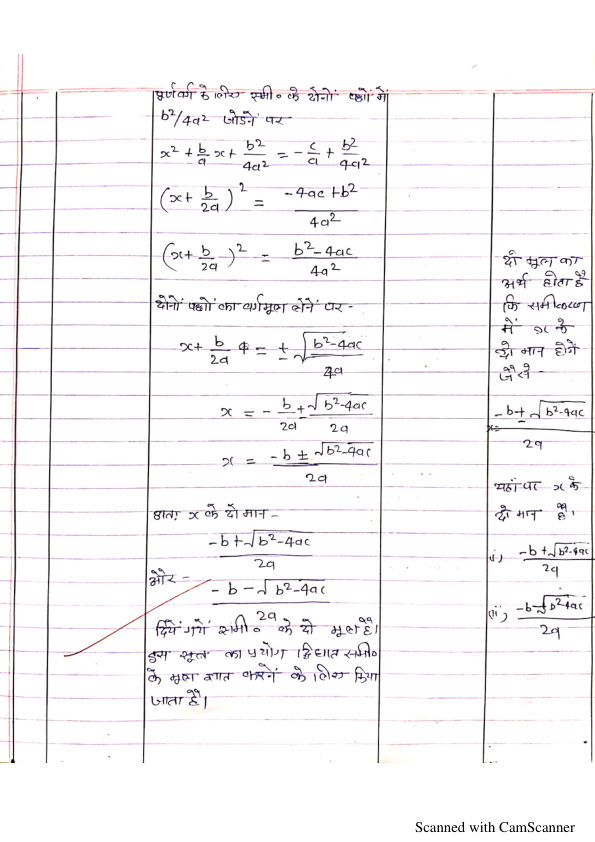 पूर्णवर्ग के लिए समी० के दोनों पक्षों में
b²/4a² जोडनें पर
x² + b/a x + b²/4a² = - c/a + b²/4a²
(x + b/2a)² = -4ac + b² / 4a²
(x + b/2a)² = b² - 4ac / 4a²
दोनों पक्षों का वर्गमूल लेनें पर -
x + b/2a = ± √b²-4ac / 2a
x = - b/2a ± √b²-4ac / 2a
x = -b ± √b²-4ac / 2a
अतः x के दो मान -
-b + √b²-4ac / 2a
और -
-b - √b²-4ac / 2a
दिये गये समी० के दो मूल है।
इस सूत्र का प्रयोग द्विघात समी०
के मूल ज्ञात करनें के लिए किया
जाता है।
दो मूल का
अर्थ होता है
कि समीकरण
में x के
दो मान होगें
जैसे -
x = -b ± √b²-4ac / 2a
यहां पर x के
दो मान है।
(i) -b + √b²-4ac / 2a
(ii) -b - √b²-4ac / 2a
Scanned with CamScanner